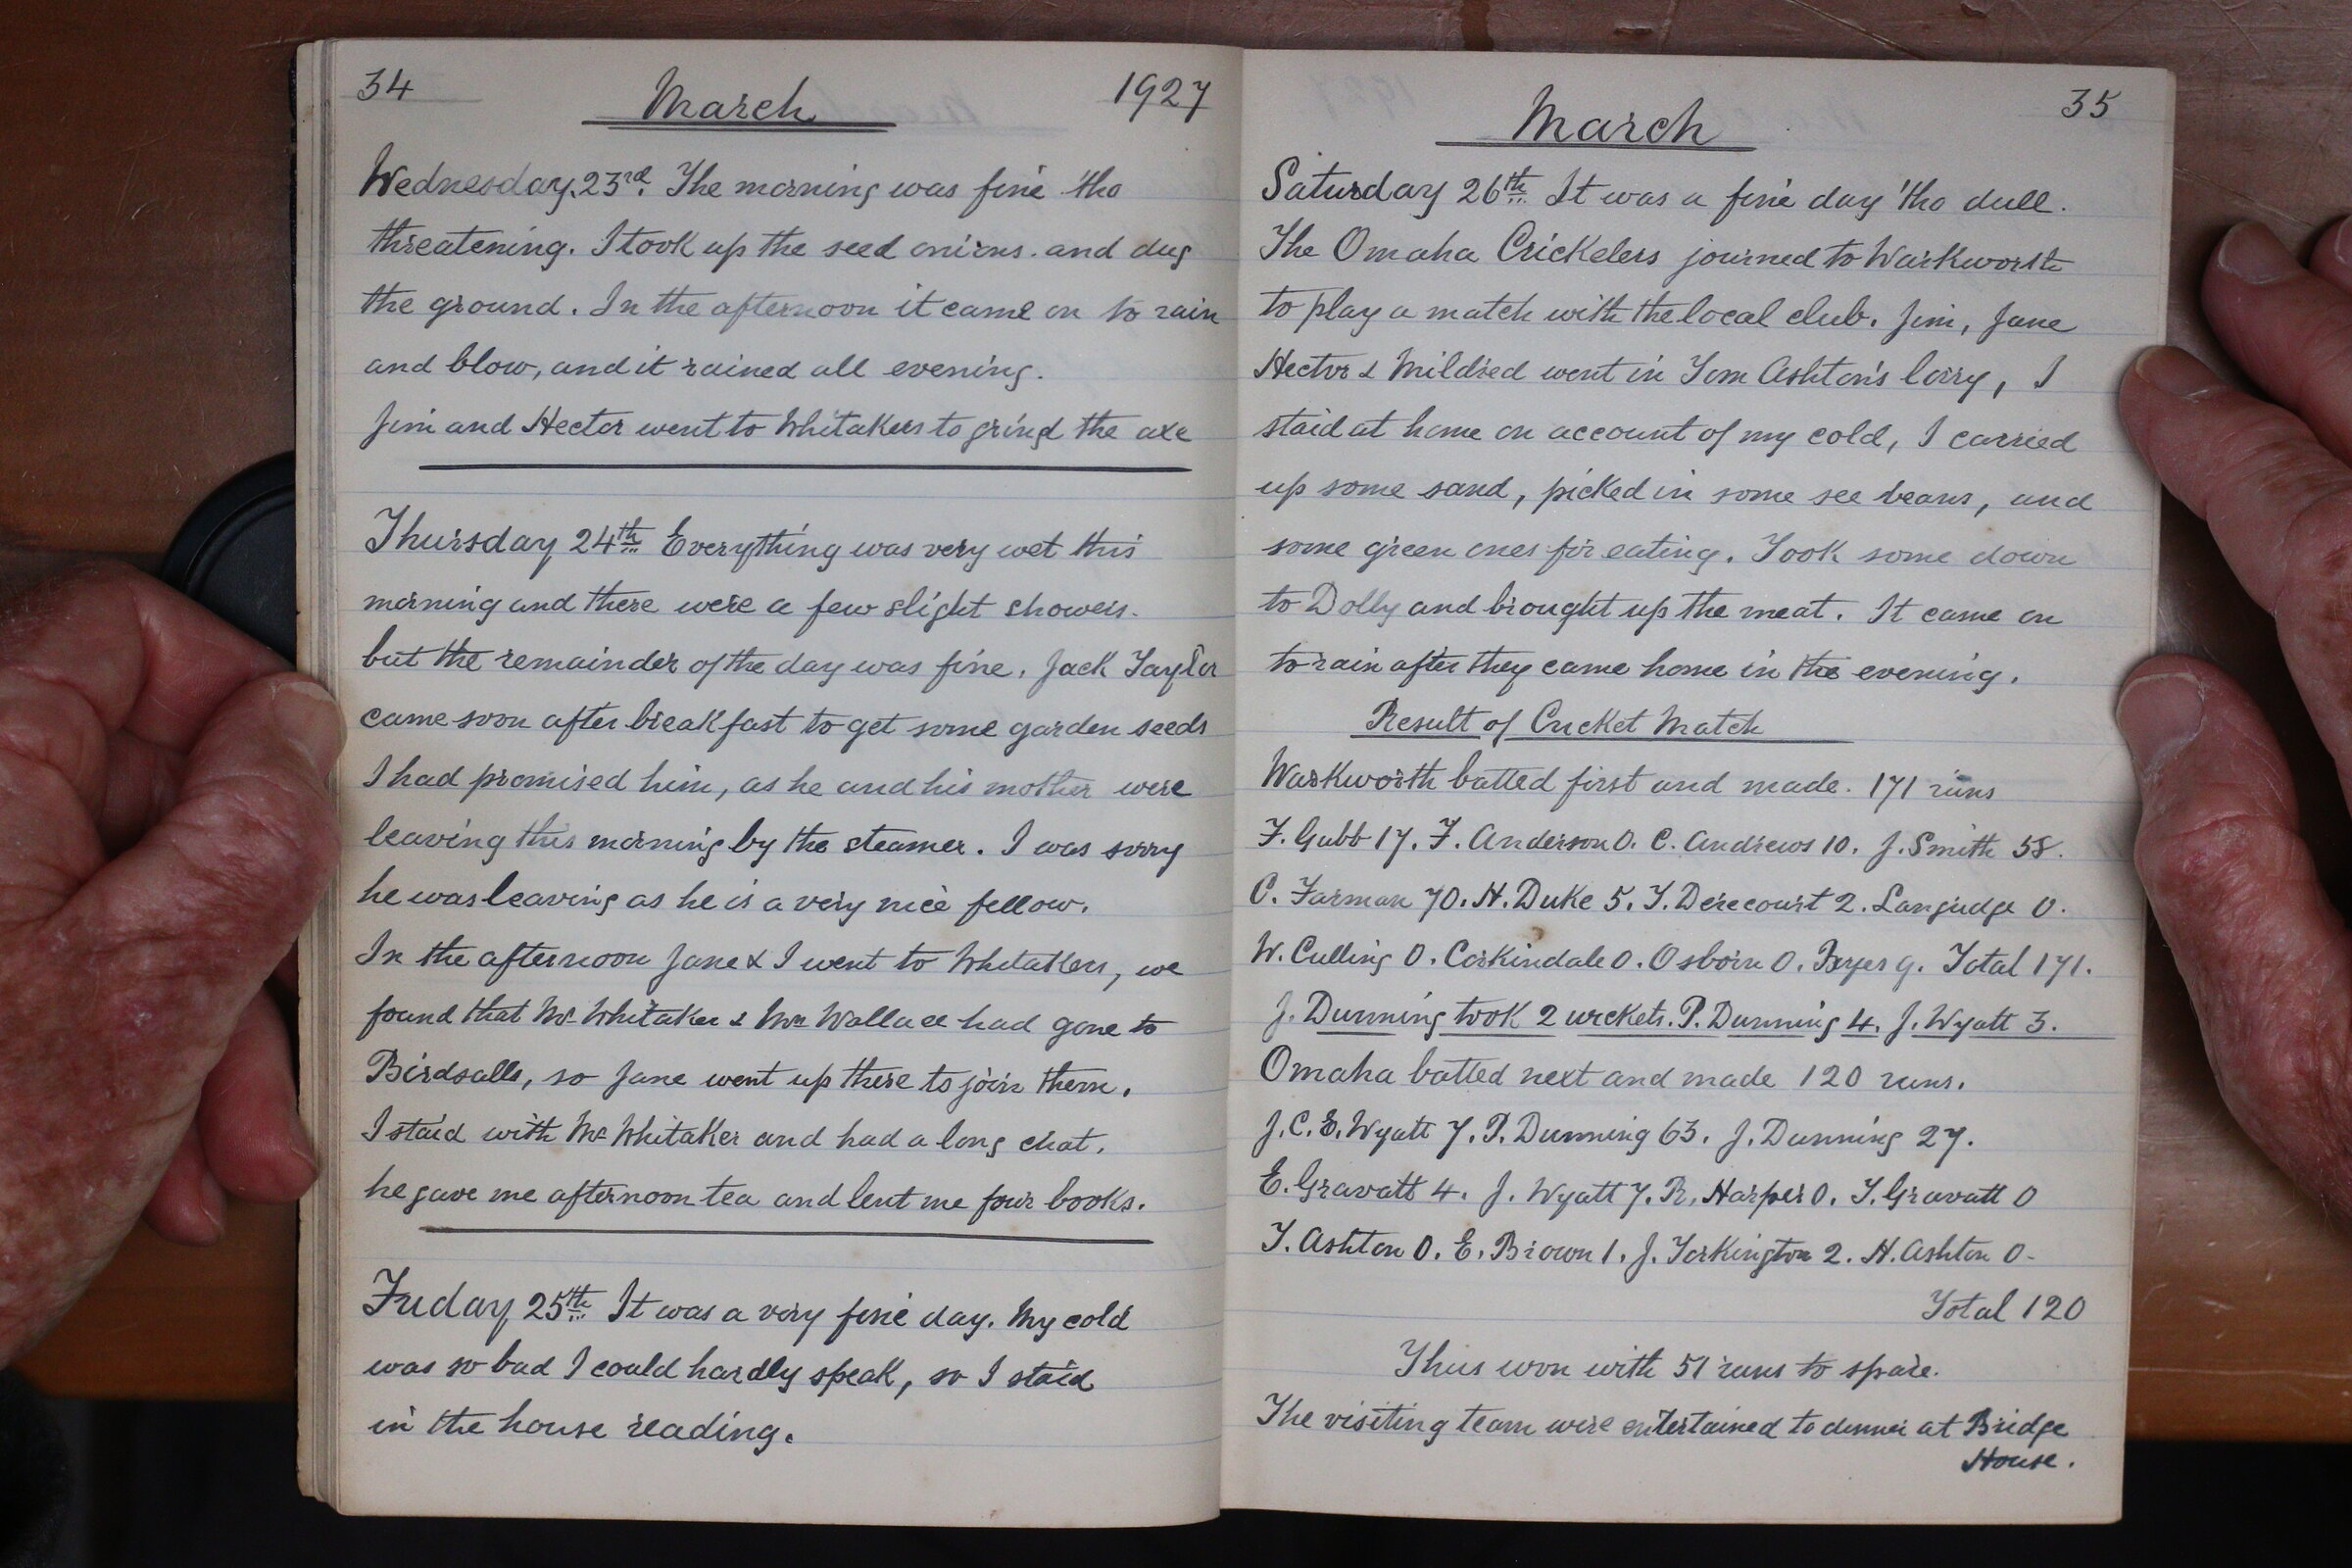 34 March 1927
Wednesday. 23rd. The morning was fine 'tho
threatening. I took up the seed onions. and dug
the ground. In the afternoon it came on to rain
and blow, and it rained all evening.
Jim and Hector went to Whitakers to grind the axe
Thursday 24th Everything was very wet this
morning and there were a few slight showers.
but the remainder of the day was fine. Jack Taylor
came soon after breakfast to get some garden seeds
I had promised him, as he and his mother were
leaving this morning by the steamer. I was sorry
he was leaving as he is a very nice fellow.
In the afternoon Jane & I went to Whitakers, we
found that Mrs Whitaker & Mrs Wallace had gone to
Birdsalls, so Jane went up there to join them.
I staid with Mr Whitaker and had a long chat.
he gave me afternoon tea and lent me four books.
Friday 25th It was a very fine day. My cold
was so bad I could hardly speak, so I staid
in the house reading.
March 35
Saturday 26th It was a fine day 'tho dull.
The Omaha Cricketers journed to Warkworth
to play a match with the local club. Jim, Jane
Hector & Mildred went in Tom Ashton's lorry, I
staid at home on account of my cold, I carried
up some sand, picked in some see beans, and
some green ones for eating. Took some down
to Dolly and brought up the meat. It came on
to rain after they came home in the evening.
Result of Cricket Match
Warkworth batted first and made. 171 runs
F. Gubb 17. F. Anderson 0. C. Andrews 10. J. Smith 58.
C. Farman 70. H. Duke 5. T. Derecourt 2. Langudge 0.
W. Culling 0. Corkindale 0. Osborn 0. 9. Total 171.
J. Dunning took 2 wickets. P. Dunning 4. J. Wyatt 3.
Omaha batted next and made 120 runs.
J. C. E. Wyatt 7. P. Dunning 63. J. Dunning 27.
E. Gravatt 4. J. Wyatt 7. R. Harper 0. T. Gravatt 0
T. Ashton 0. E. Brown 1. J. Torkington 2. H. Ashton 0-
Total 120
Thus won with 51 runs to spare.
The visiting team were entertained to dinner at Bridge
House.